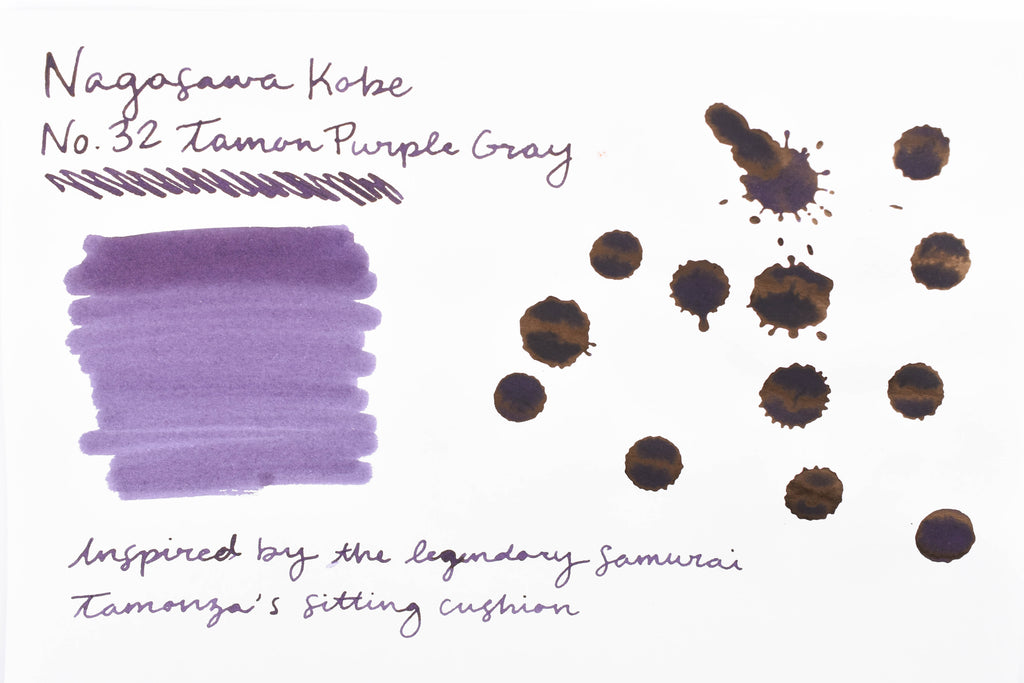 Nagasawa Kobe
No. 32 Tamon Purple Gray
Inspired by the legendary samurai
Tamonza's sitting cushion